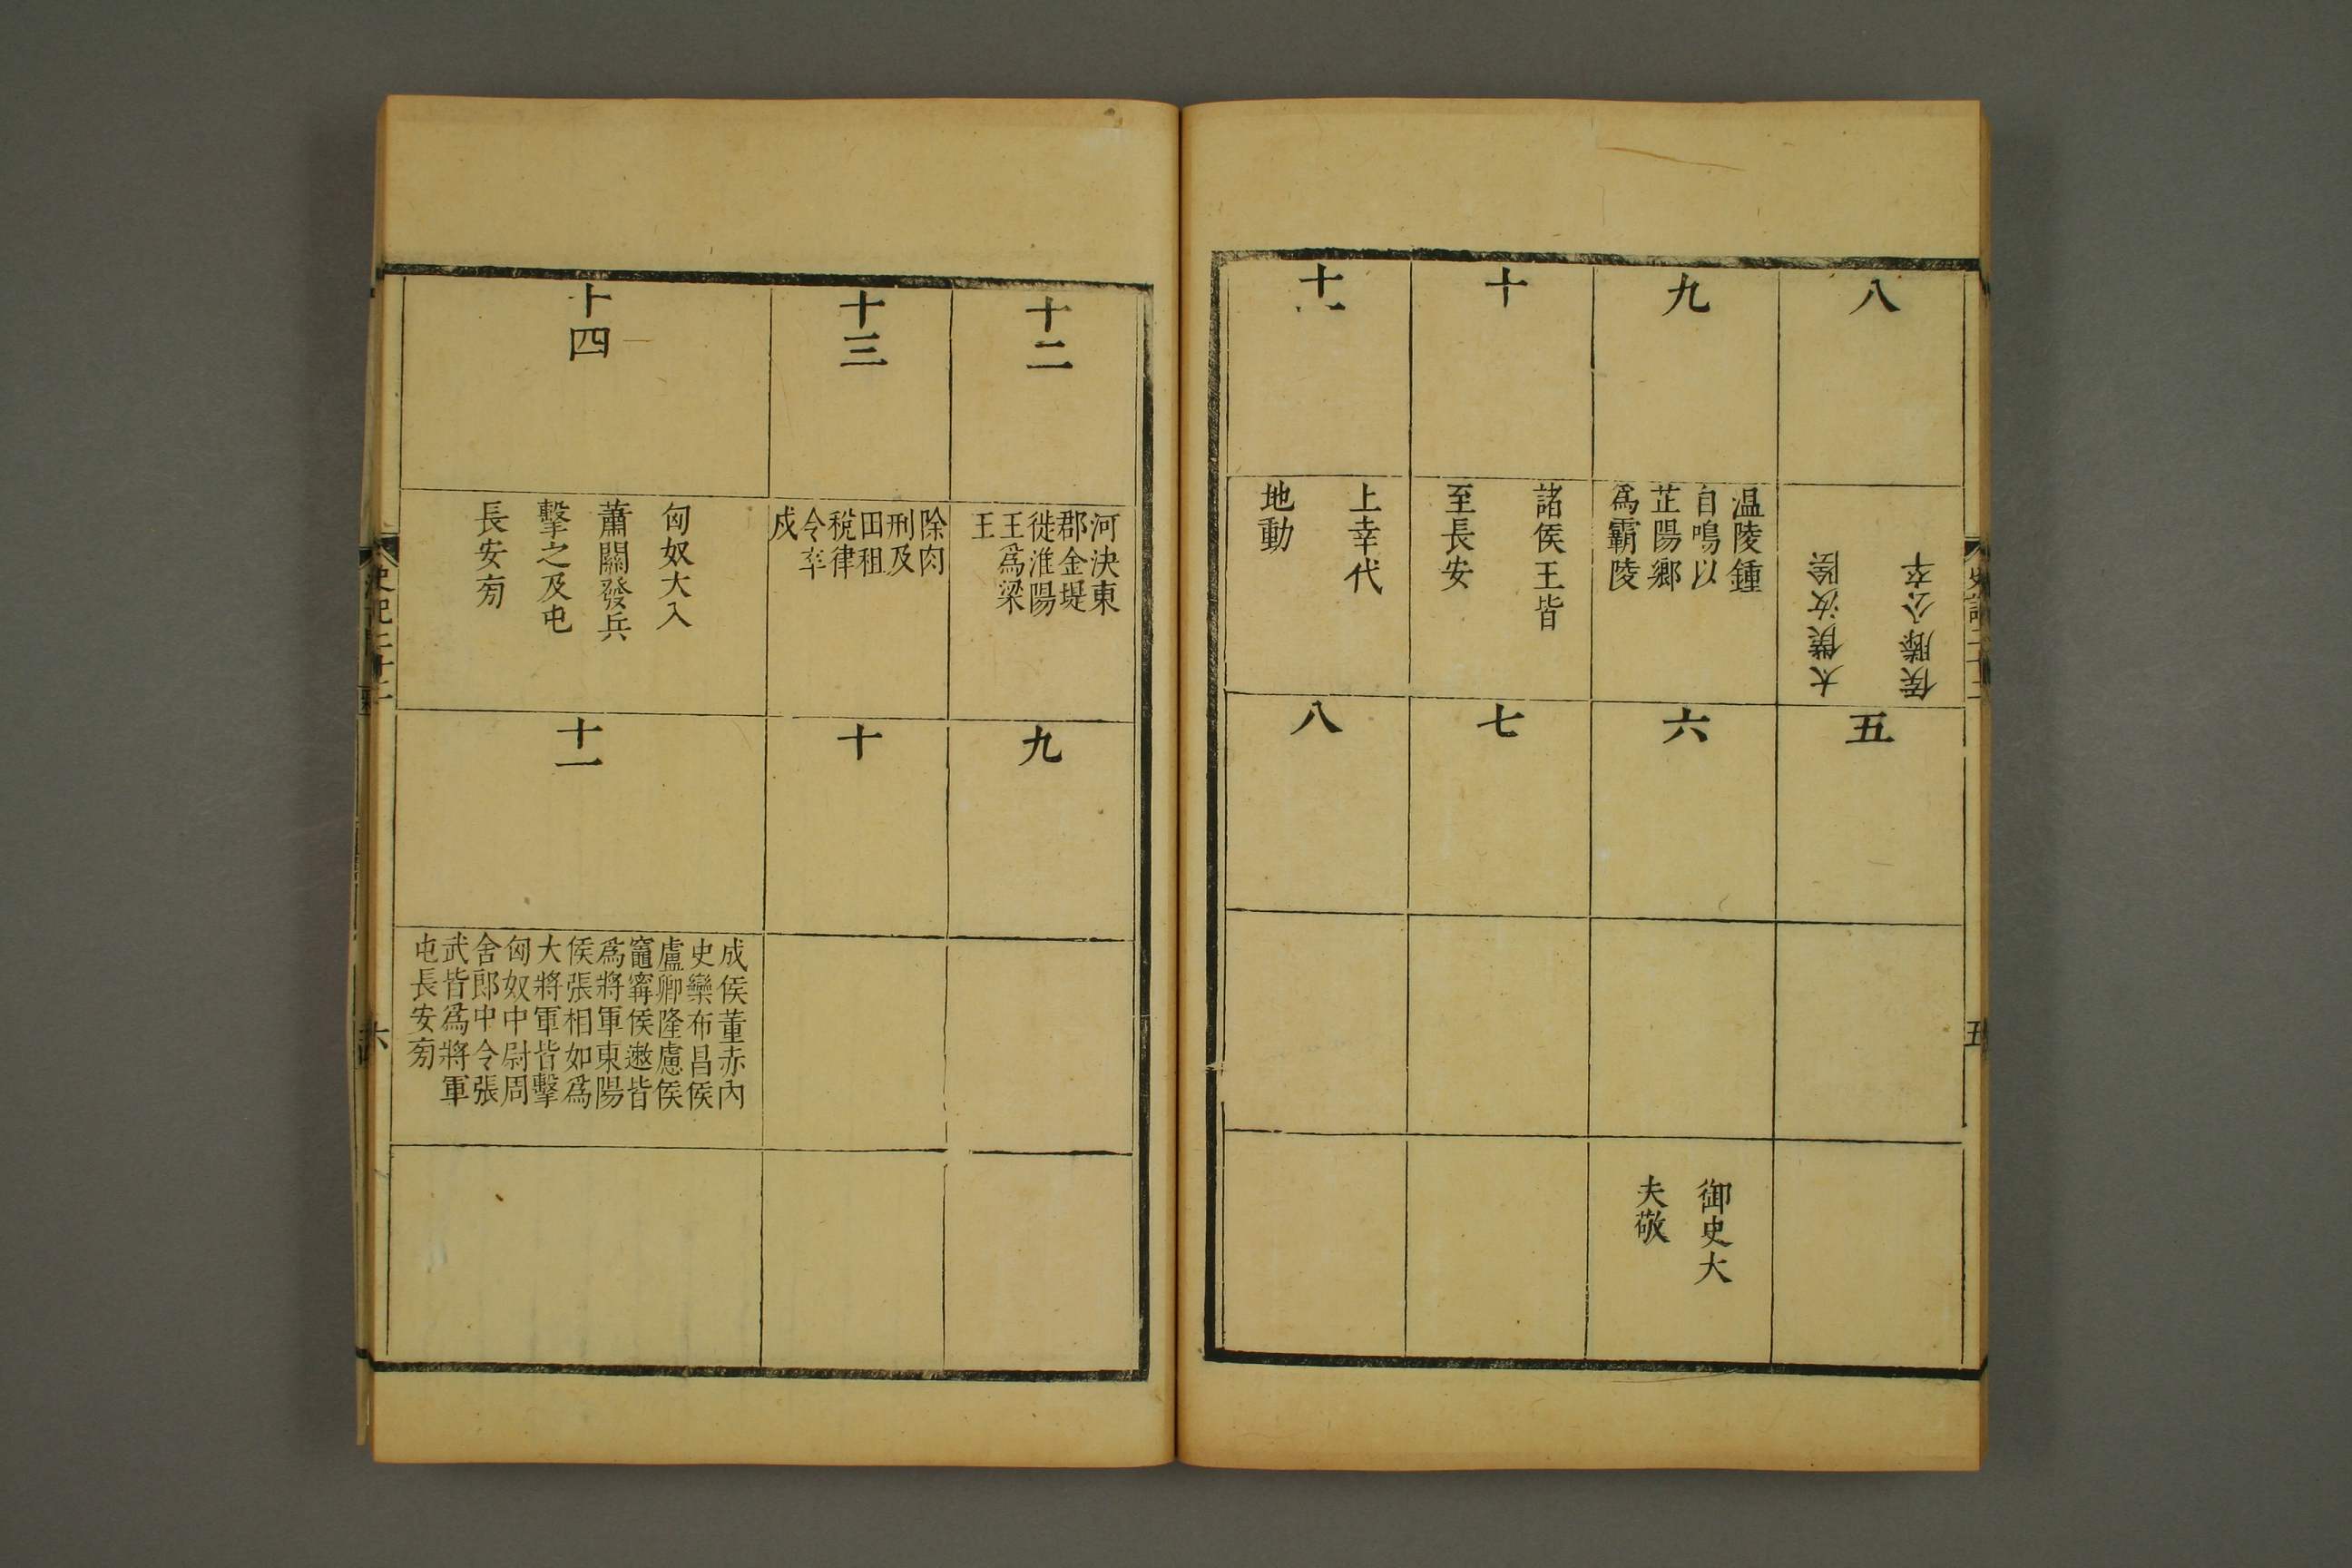 史記二十二
五
八
太僕汝陰
侯滕公卒
五
九
温陵鍾
自鳴以
芷陽鄉
爲霸陵
六
御史大
夫敬
十
諸侯王皆
至長安
七
十一
上幸代
地動
八
十二
河決東
郡金堤
徙淮陽
王爲梁
王
九
十三
除肉
刑及
田租
稅律
令率
戍
十
十四
匈奴大入
蕭關發兵
擊之及屯
長安旁
十一
成侯董赤內
史欒布昌侯
盧卿隆慮侯
竈甯侯遫皆
爲將軍東陽
侯張相如爲
大將軍皆擊
匈奴中尉周
舍郎中令張
武皆爲將軍
屯長安旁
史記二十二
六